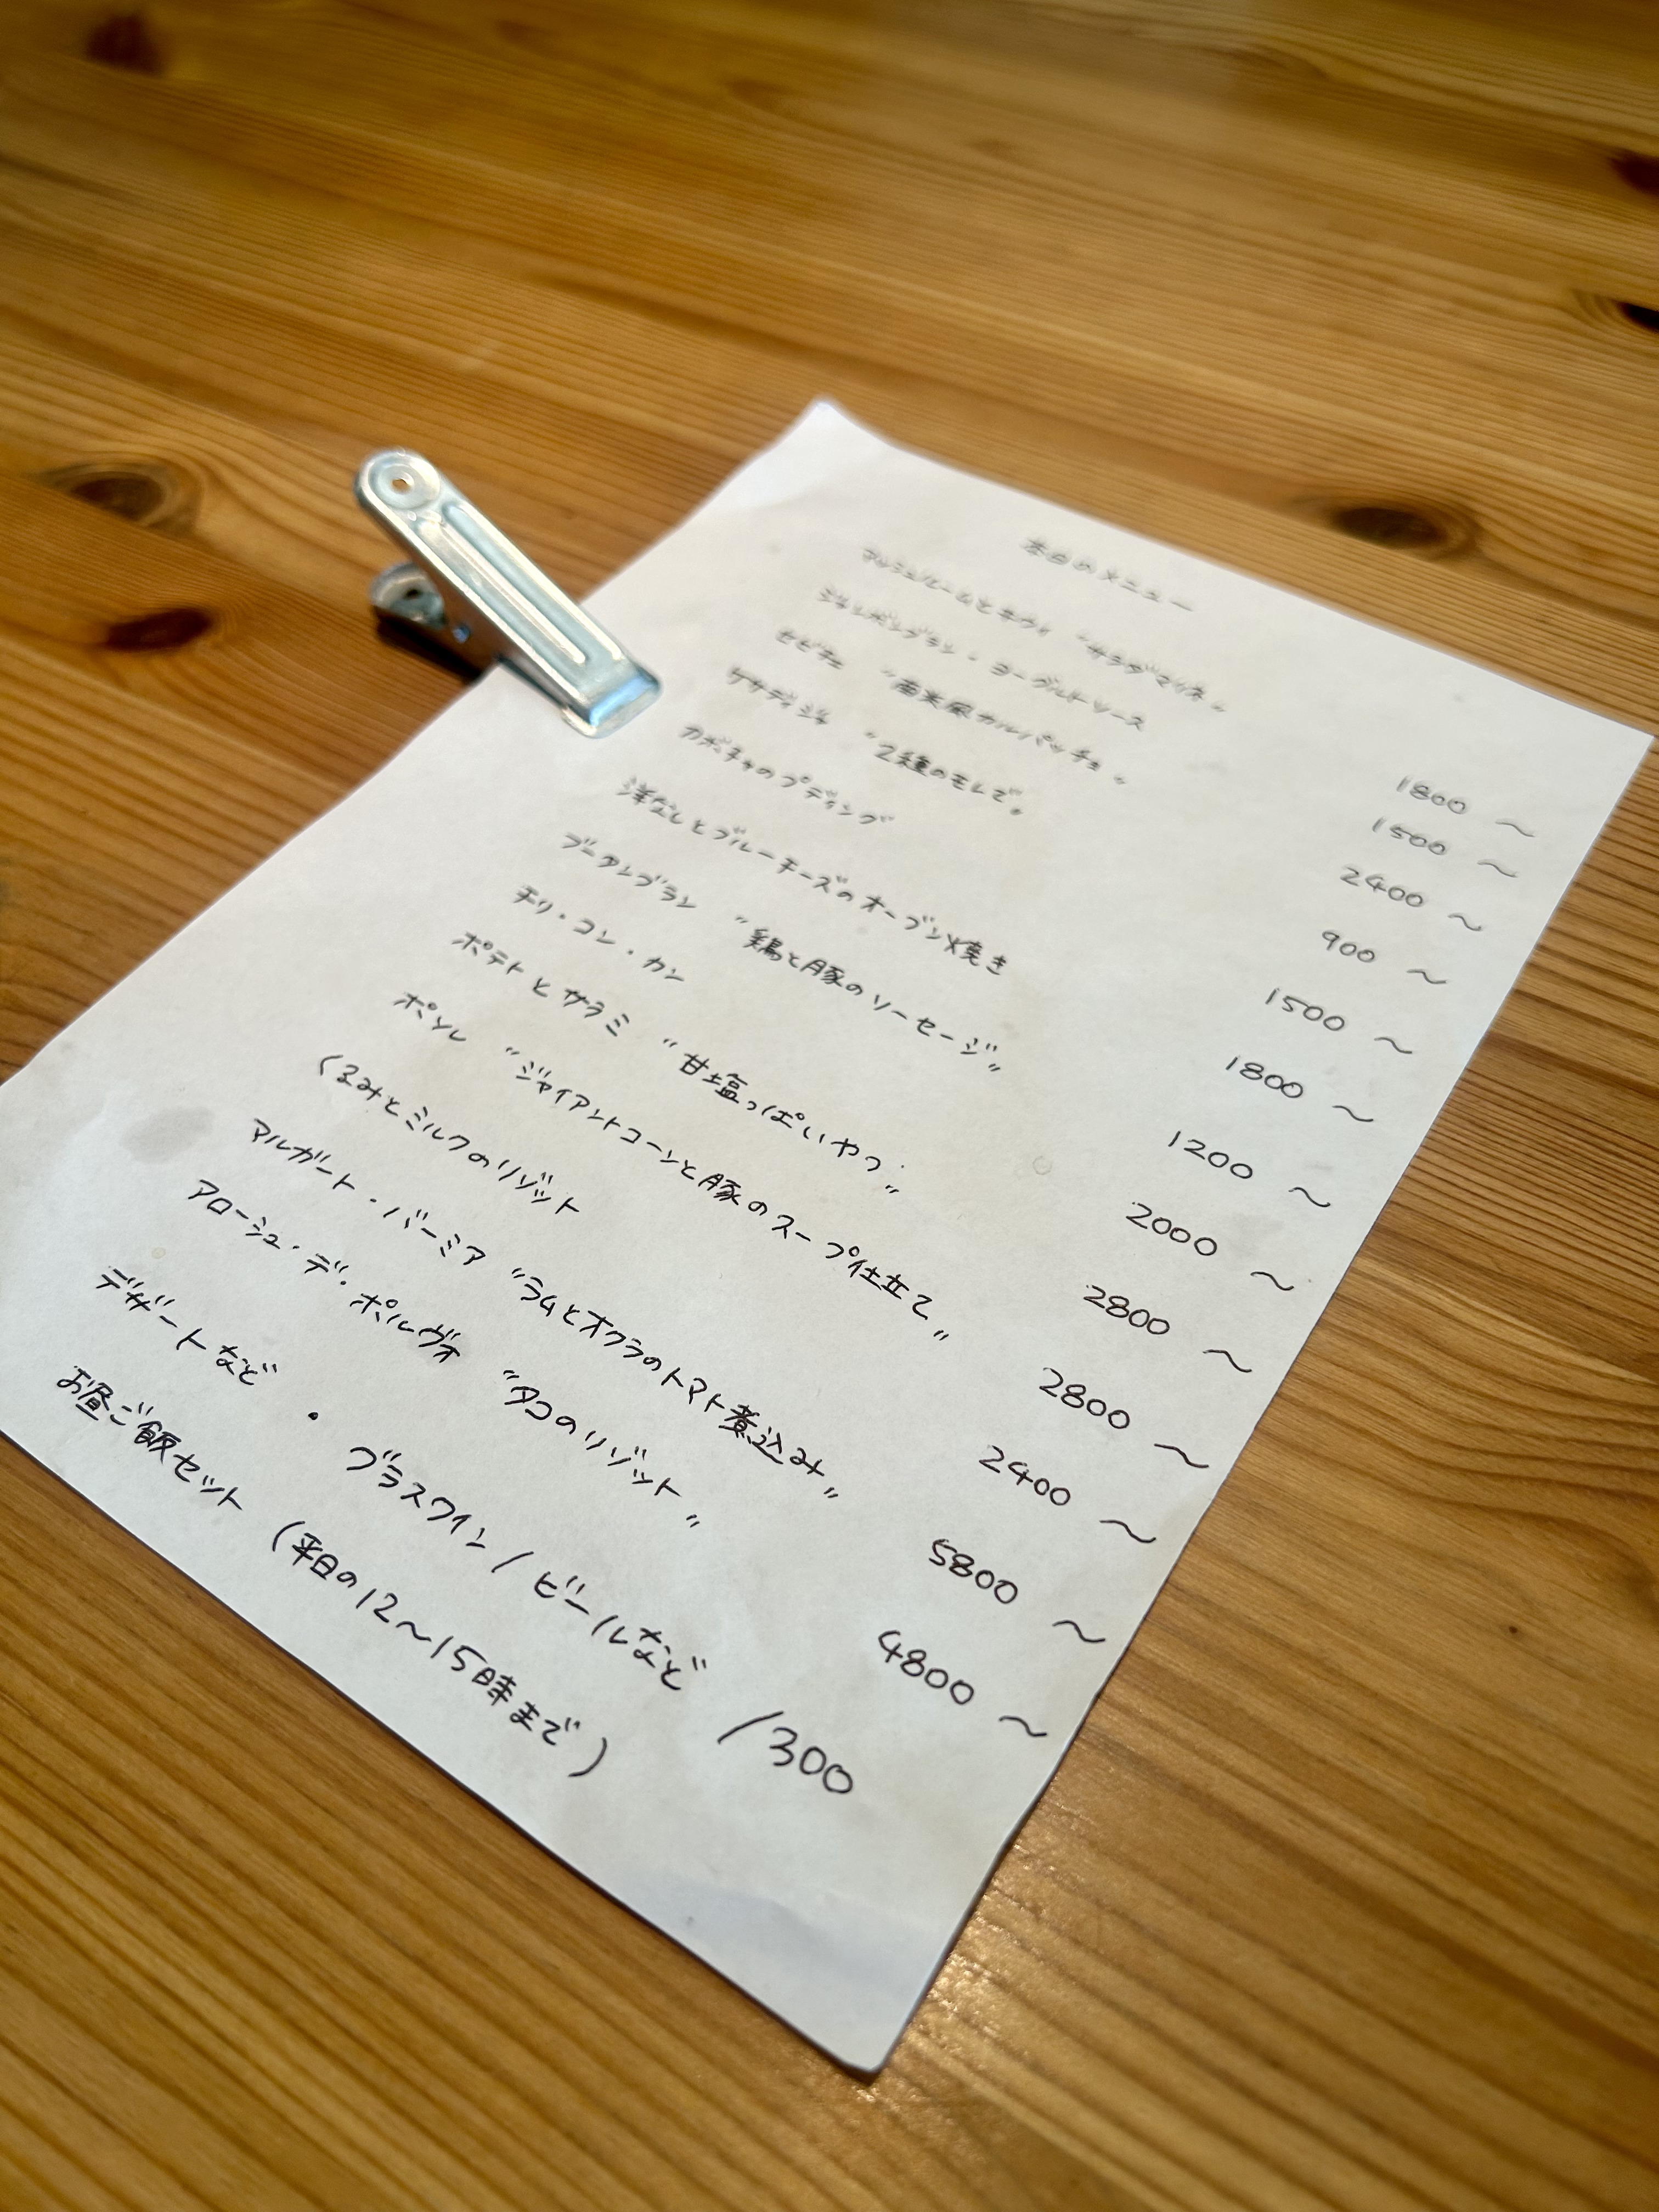 本日のメニュー
マッシュルームとキウイ "サラダマリネ" 1800 ~
ジャンボンブラン・ヨーグルトソース 1500 ~
セビチェ "南米風カルパッチョ" 2400 ~
ケサディジャ "2種のモレで" 900 ~
カボチャのプディング 1500 ~
洋なしとブルーチーズのオーブン焼き 1800 ~
ブータンブラン "鶏と豚のソーセージ" 1200 ~
チリ・コン・カン 2000 ~
ポテトとサラミ "甘塩っぱいやつ" 2800 ~
ポソレ "ジャイアントコーンと豚のスープ仕立て" 2800 ~
くるみとミルクのリゾット 2400 ~
マルガート・バーミア "ラムとオクラのトマト煮込み" 5800 ~
アローシュ・デ・ポルヴォ "タコのリゾット" 4800 ~
デザートなど ・ グラスワイン / ビールなど
お昼ご飯セット (平日の12~15時まで) 1300